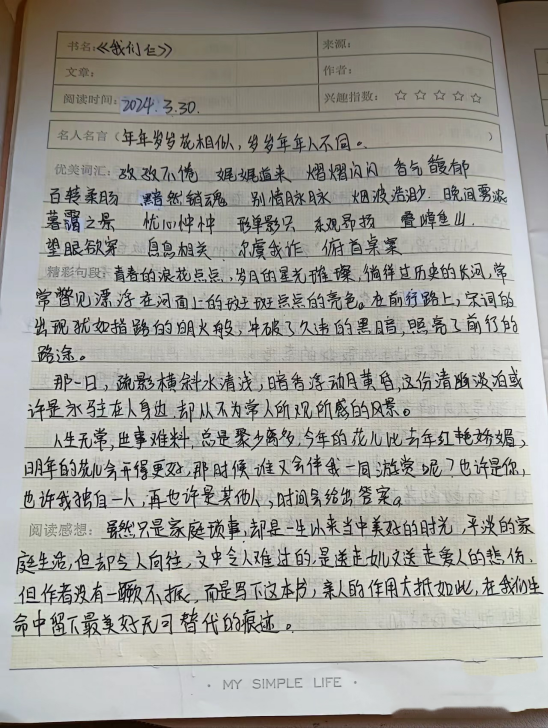 书名:《我们仨》 来源:
文章: 作者:
阅读时间: 2024.3.30. 兴趣指数: ☆ ☆ ☆ ☆ ☆
名人名言（年年岁岁花相似，岁岁年年人不同。）
优美词汇: 孜孜不倦 娓娓道来 熠熠闪闪 香气馥郁
百转柔肠 黯然销魂 别情脉脉 烟波浩渺 晚间雾凇
暮霭之景 忧心忡忡 形单影只 乐观昂扬 叠嶂
望眼欲穿 息息相关 尔虞我诈 俯首桌案
精彩句段: 青春的浪花点点，岁月的星光璀璨，徜徉过历史的长河，常
常瞥见漂浮在河面上的斑斑点点的亮色。在前行路上，宋词的
出现犹如指路的明火般，冲破了久违的黑暗，照亮了前行的
路途。
那一日，疏影横斜水清浅，暗香浮动月黄昏，这份清幽淡泊或
许是永驻在人身边，却从不为常人所观所感的风景。
人生无常，世事难料，总是聚少离多，今年的花儿比去年红艳娇媚，
明年的花儿会开得更好，那时候谁又会伴我一同游赏呢？也许是你，
也许我独自一人，再也许是其他人，时间会给出答案。
阅读感想: 虽然只是家庭琐事，却是一生以来当中美好的时光，平淡的家
庭生活，但却令人向往，文中令人难过的是送走女儿又送走爱人的悲伤，
但作者没有一蹶不振，而是写下这本书，亲人的作用大抵如此，在我们生
命中留下最美好无可替代的痕迹。
· MY SIMPLE LIFE ·